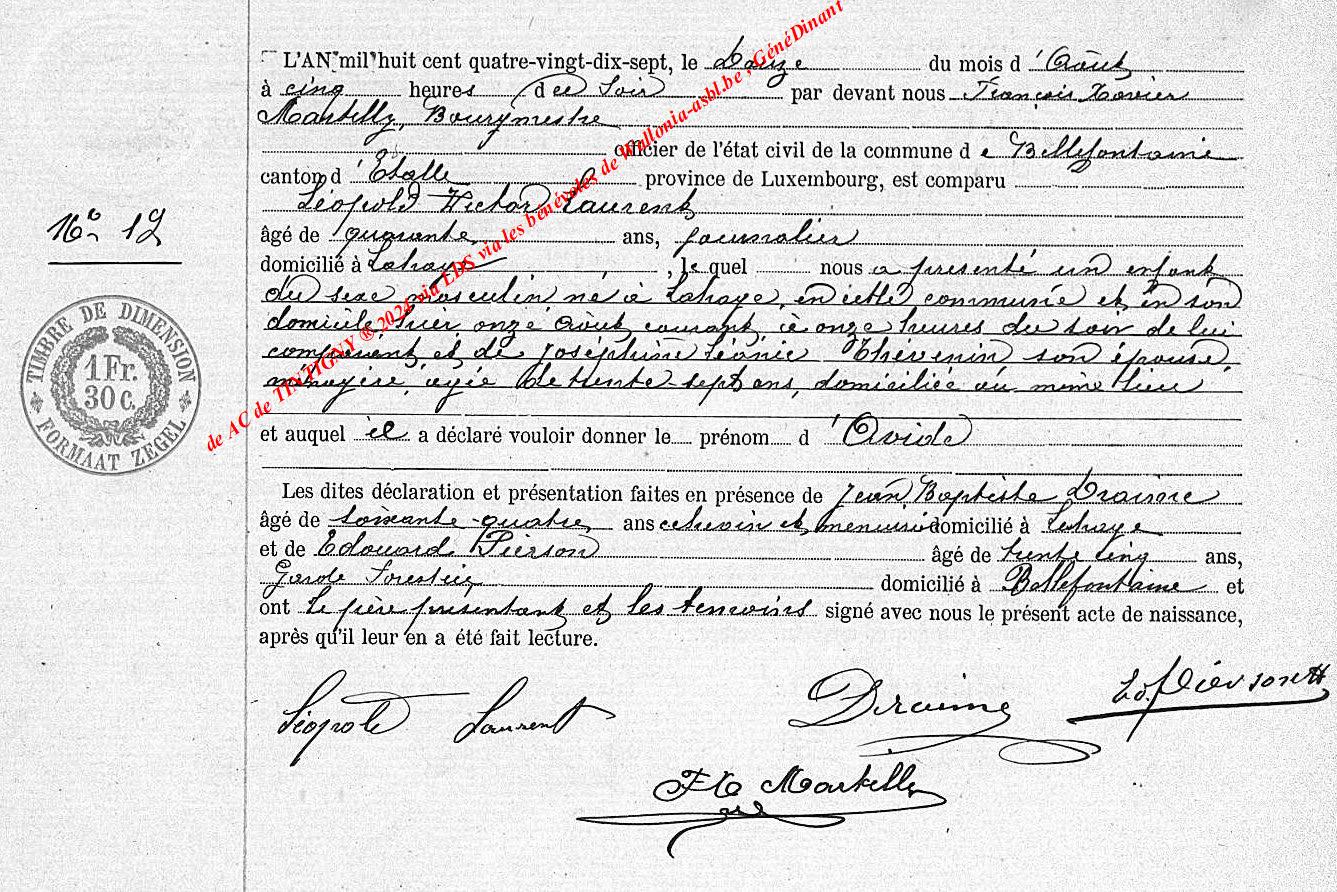 L'AN mil huit cent quatre-vingt-dix-sept, le douze du mois d'Août
à cinq heures du Soir par devant nous François Xavier
Martilly, Bourgmestre
officier de l'état civil de la commune de Bellefontaine
canton d'Etalle province de Luxembourg, est comparu
Léopold Victor Laurent
âgé de quarante ans, journalier
domicilié à Lahaye, le quel nous a présenté un enfant
du sexe Masculin né à Lahaye, en cette commune et en son
domicile hier onze Août courant, à onze heures du soir de lui
comparant et de Joséphine Léonie Thévenin son épouse,
ménagère, âgée de trente-sept ans, domiciliée au même lieu
et auquel il a déclaré vouloir donner le prénom d'Ovide
Les dites déclaration et présentation faites en présence de Jean Baptiste Draime
âgé de soixante-quatre ans echevin et menuisier domicilié à Lahaye
et de Edouard Pierson âgé de trente cinq ans,
Garde Forestier domicilié à Bellefontaine et
ont le père présentant et les temoins signé avec nous le présent acte de naissance,
après qu'il leur en a été fait lecture.
Léopold Laurent
Draime
Ed. Pierson
FX Martilly
No 12
TIMBRE DE DIMENSION
1 Fr.
30 C.
FORMAAT ZEGEL
de AC de TINTIGNY ® 2024 via LDS via les bénévoles de Wallonia-asbl.be, GénéDinant